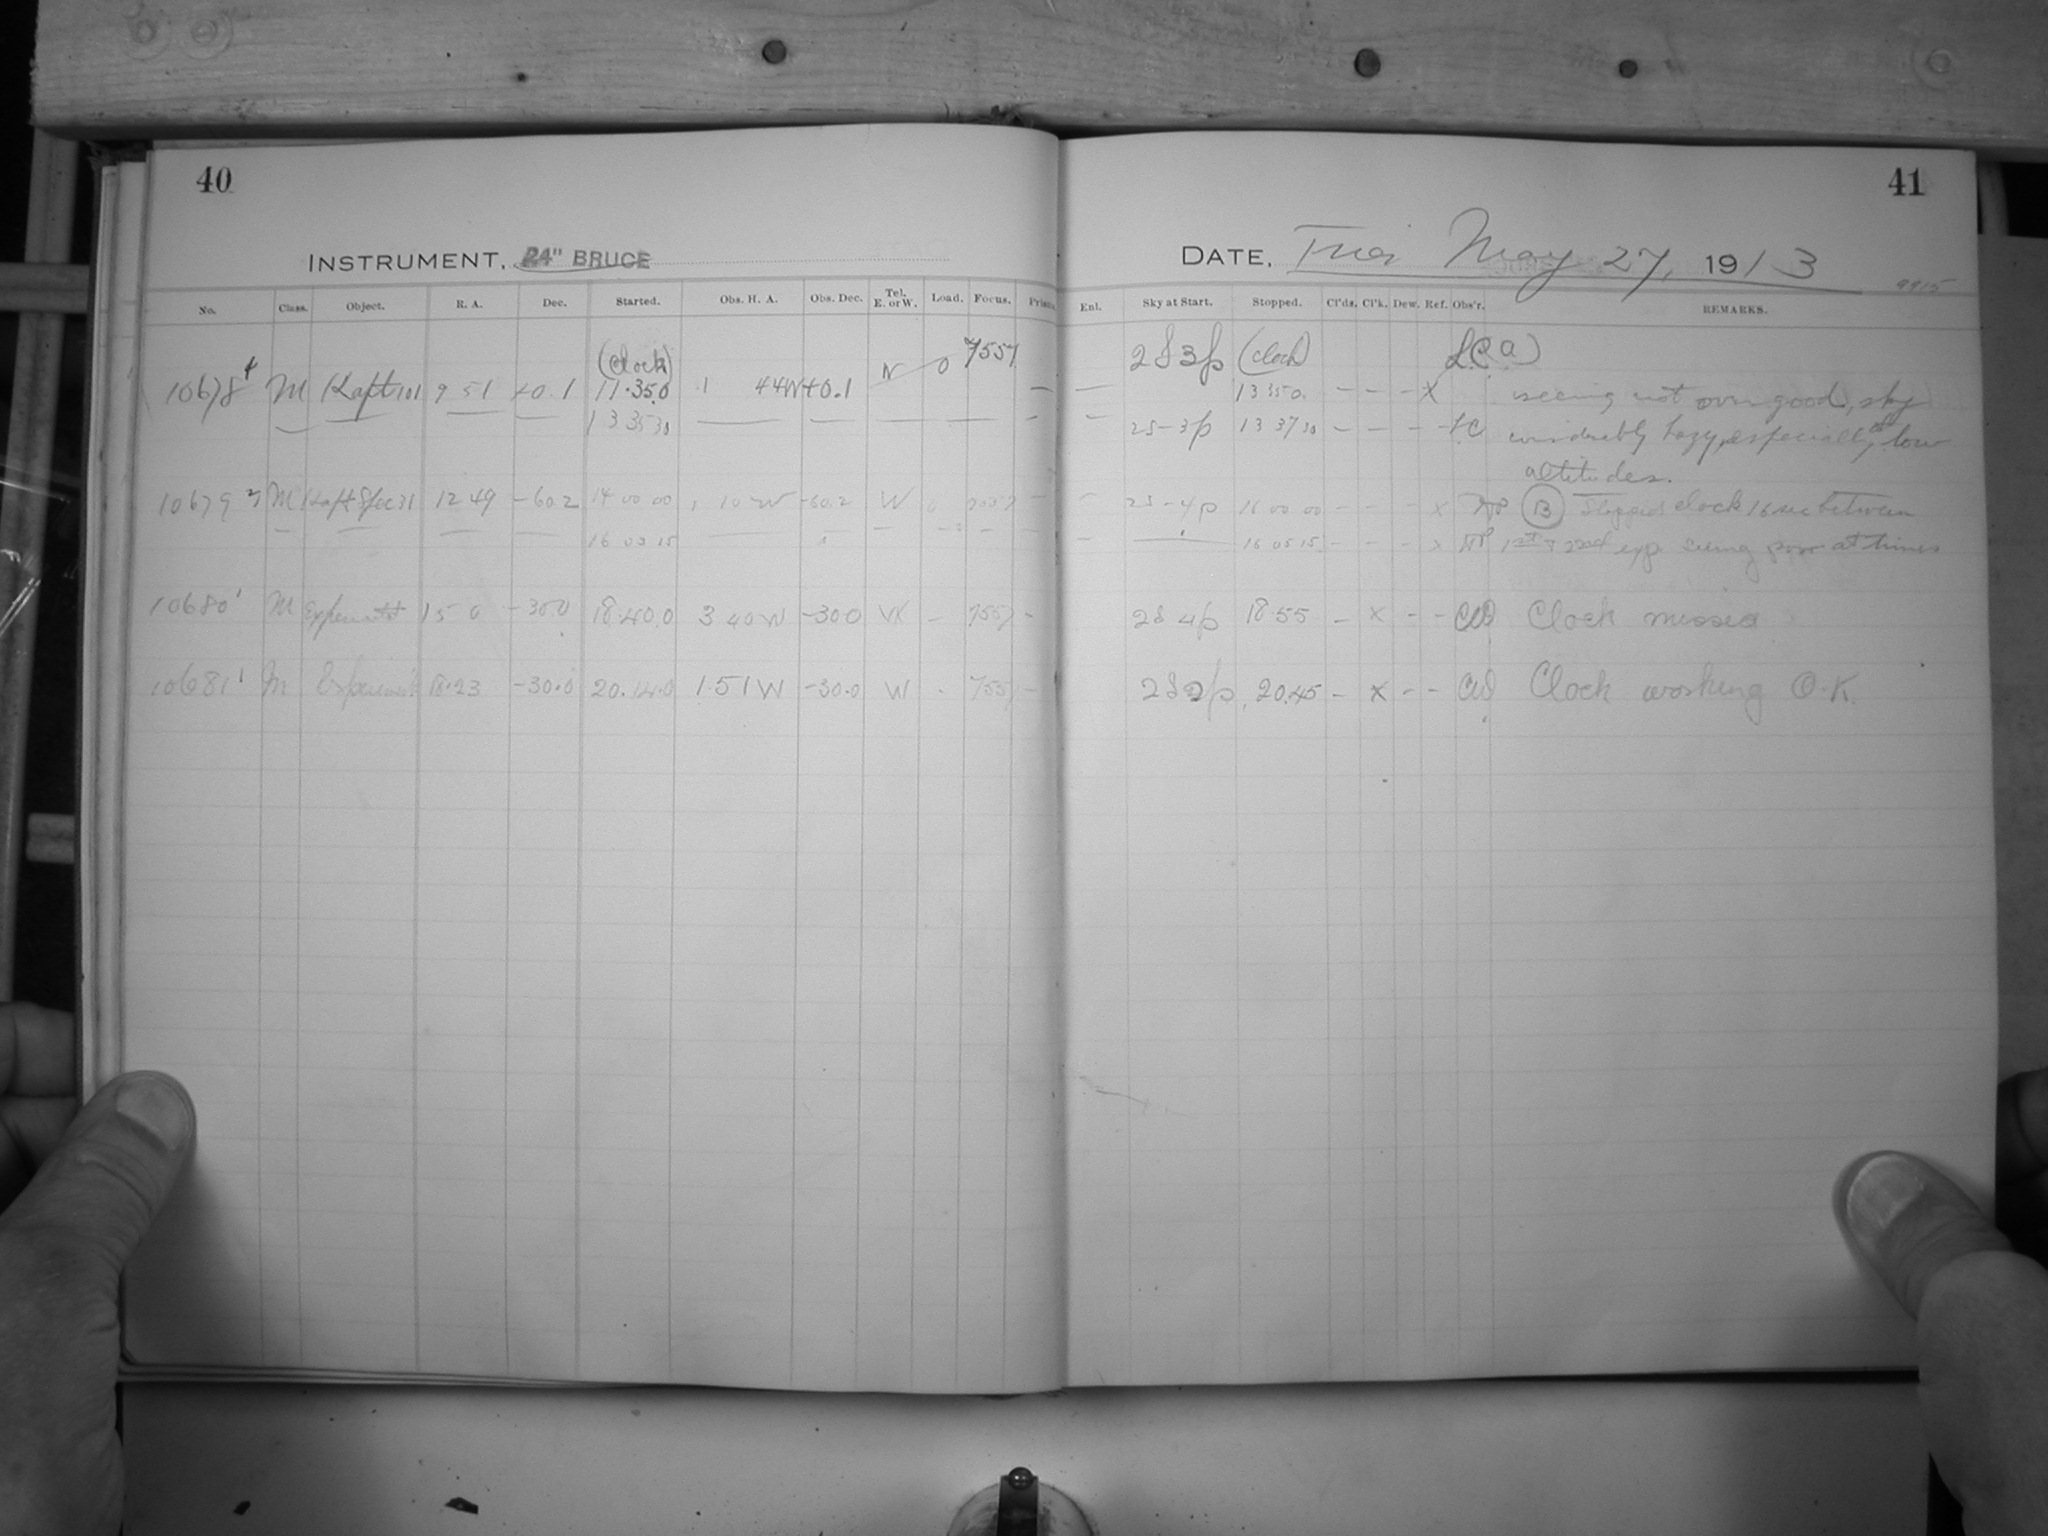 40
INSTRUMENT, 24" BRUCE
No. Class. Object. R. A. Dec. Started. Obs. H. A. Obs. Dec. Tel. E. or W. Load. Focus. Prism.
(Clock)
10678 4 M Kapt 101 9 51 +0.1 11.35.0 1 44W +0.1 0 7557 —
— — — — 13 35 30 — — — — —
10679 2 M Kapt Spec 31 12 49 -60.2 14 00 00 1 10 W -60.2 W 0 —
— — — — 16 03 15 — — —
10680 1 M Experimt 15 0 -30.0 18.40.0 3 40 W -30.0 W - 7557 -
10681 1 M Experimt 18.23 -30.0 20.14.0 1.51 W -30.0 W . 7557 -
41
DATE, Tues May 27, 1913
9915
Enl. Sky at Start. Stopped. Cl'ds. Cl'k. Dew. Ref. Obs'r. REMARKS.
2S3p (clock)
— 13 35 0. - - - X seeing not over good, sky
— 2S-3p 13 37 30 - - - considerably hazy, especially low
altitudes.
- 2S-4p 16 00 00 - - - x (B) Stopped clock 15 sec between
- — 16 05 15 - - - x 1st & 2nd exp seeing poor at times
2S 4p 18.55 - x - - Clock missed
2S2p 20.45 - x - - Clock working O.K.